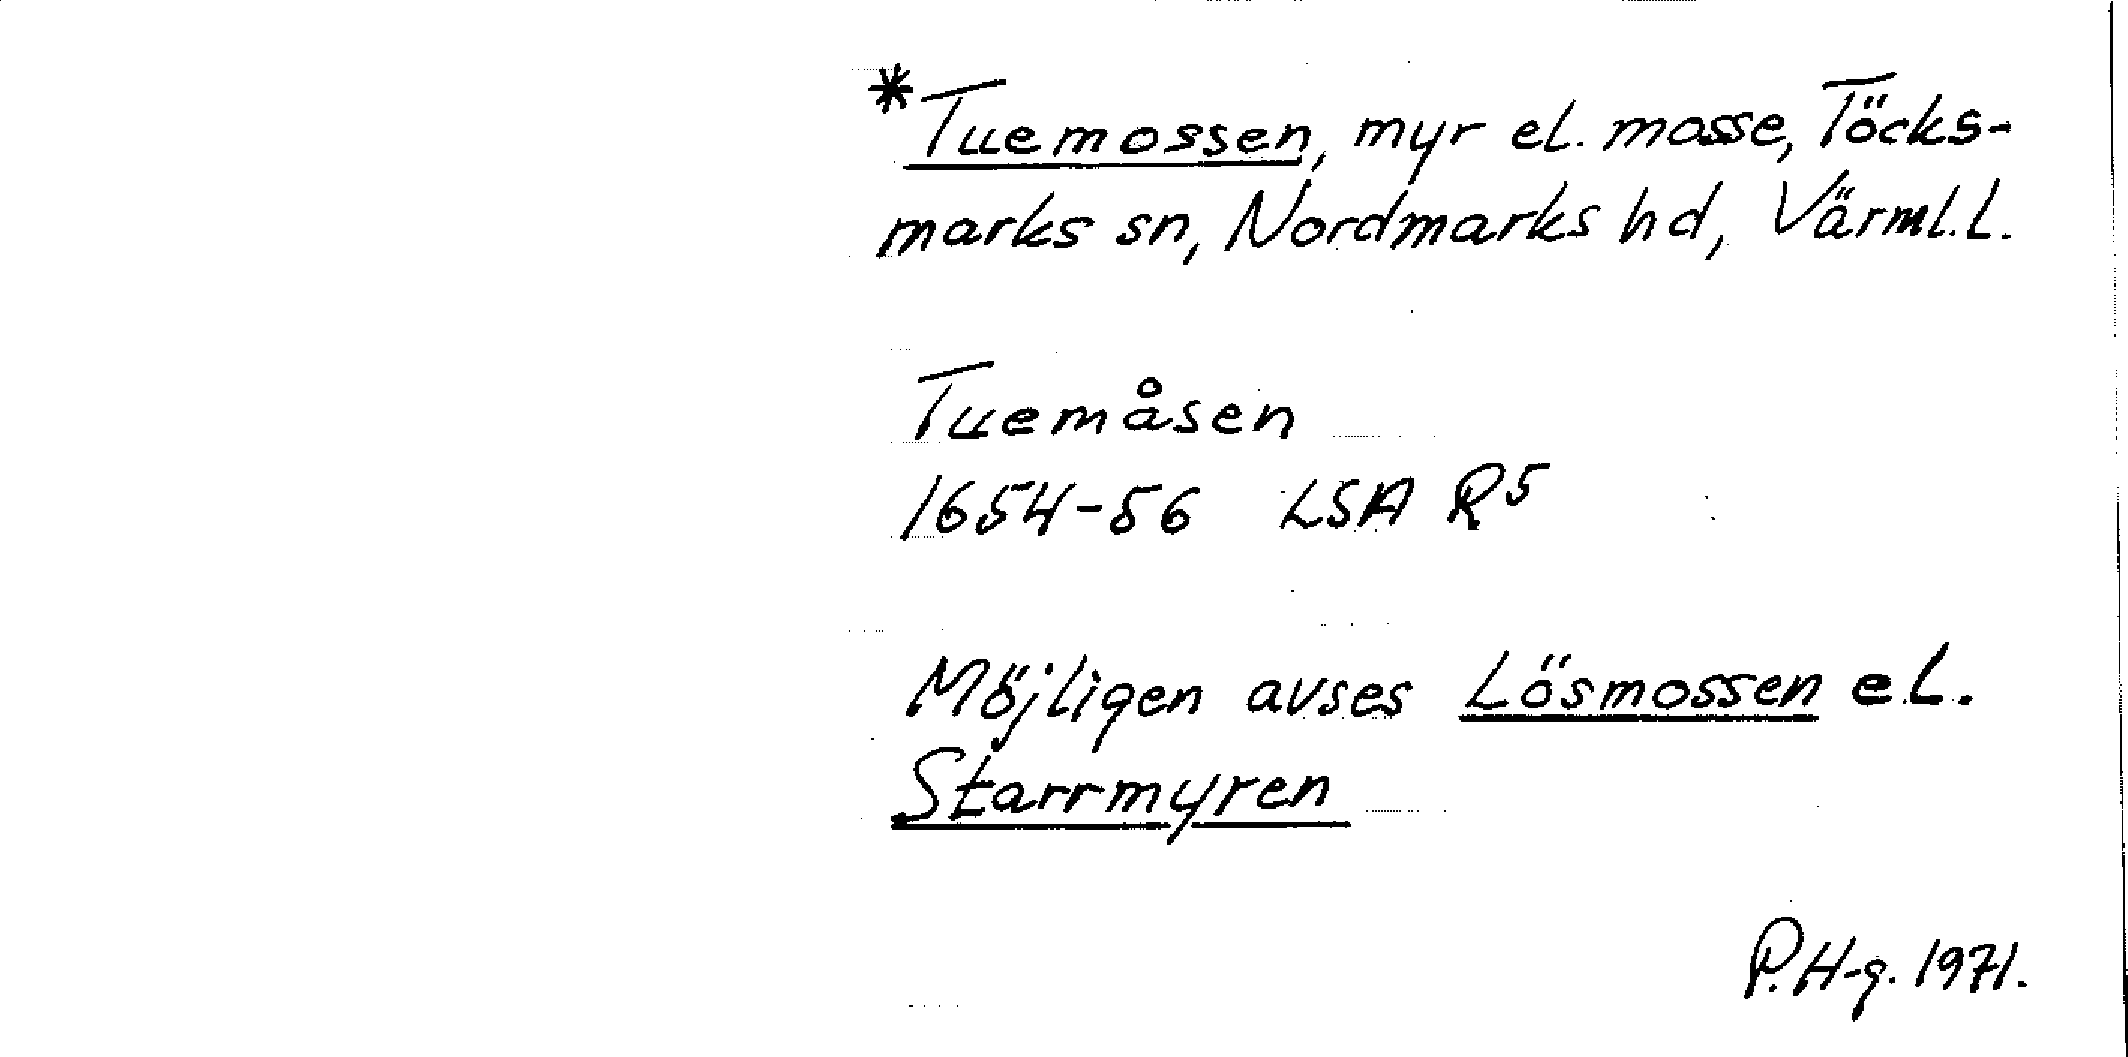 *Tuemossen, myr el. mosse, Töcks-
marks sn, Nordmarks hd, Värml. l.
Tuemåsen
1654-56 LSA R5
Möjligen avses Lösmossen el.
Starrmyren
P. H-g. 1971.